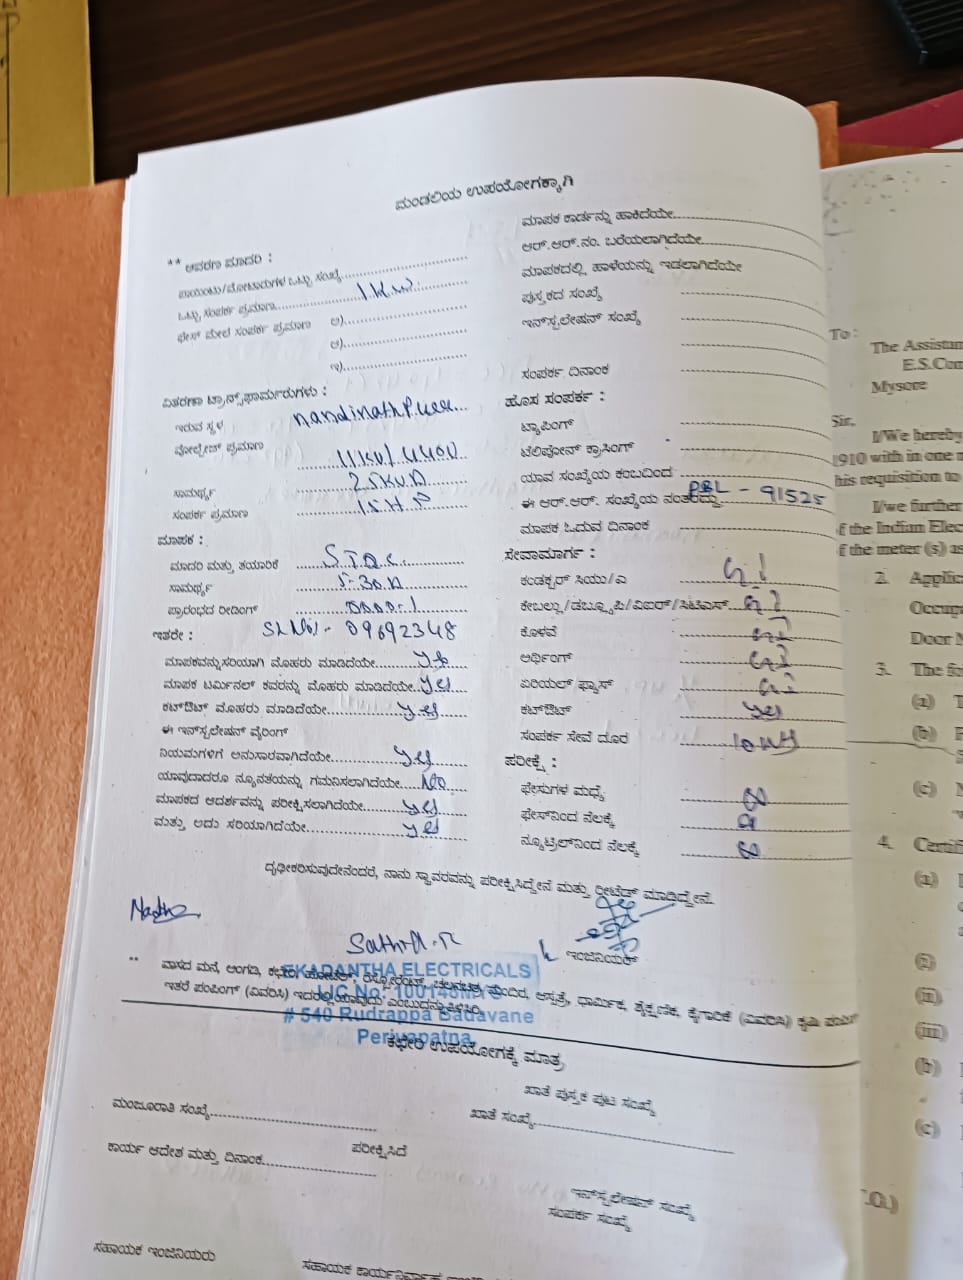 ಮಂಡಲಿಯ ಉಪಯೋಗಕ್ಕಾಗಿ
** ಆವರಣ ಮಾದರಿ :
ಪಾಯಿಂಟು/ಮೋಟಾರುಗಳ ಒಟ್ಟು ಸಂಖ್ಯೆ
ಒಟ್ಟು ಸಂಪರ್ಕ ಪ್ರಮಾಣ 1 K.W
ಫೇಸ್ ಮೇಲೆ ಸಂಪರ್ಕ ಪ್ರಮಾಣ ಅ)
ಆ)
ಇ)
ವಿತರಣಾ ಟ್ರಾನ್ಸ್‌ಫಾರ್ಮರುಗಳು :
ಇರುವ ಸ್ಥಳ nandinathPura
ವೋಲ್ಟೇಜ್ ಪ್ರಮಾಣ 11KV/440V
ಸಾಮರ್ಥ್ಯ 25KVA
ಸಂಪರ್ಕ ಪ್ರಮಾಣ 15 H.P
ಮಾಪಕ :
ಮಾದರಿ ಮತ್ತು ತಯಾರಿಕೆ
ಸಾಮರ್ಥ್ಯ 5-30A
ಪ್ರಾರಂಭದ ರೀಡಿಂಗ್ 0000.1
ಇತರೇ : SL No:- 09692348
ಮಾಪಕವನ್ನು ಸರಿಯಾಗಿ ಮೊಹರು ಮಾಡಿದೆಯೇ yes
ಮಾಪಕ ಟರ್ಮಿನಲ್ ಕವರನ್ನು ಮೊಹರು ಮಾಡಿದೆಯೇ yes
ಕಟ್‌ಔಟ್ ಮೊಹರು ಮಾಡಿದೆಯೇ yes
ಈ ಇನ್‌ಸ್ಟಲೇಷನ್ ವೈರಿಂಗ್
ನಿಯಮಗಳಿಗೆ ಅನುಸಾರವಾಗಿದೆಯೇ yes
ಯಾವುದಾದರೂ ನ್ಯೂನತೆಯನ್ನು ಗಮನಿಸಲಾಗಿದೆಯೇ No
ಮಾಪಕದ ಆದರ್ಶವನ್ನು ಪರೀಕ್ಷಿಸಲಾಗಿದೆಯೇ yes
ಮತ್ತು ಅದು ಸರಿಯಾಗಿದೆಯೇ yes
ಮಾಪಕ ಕಾರ್ಡನ್ನು ಹಾಕಿದೆಯೇ
ಆರ್.ಆರ್.ನಂ. ಬರೆಯಲಾಗಿದೆಯೇ
ಮಾಪಕದಲ್ಲಿ ಹಾಳೆಯನ್ನು ಇಡಲಾಗಿದೆಯೇ
ಪುಸ್ತಕದ ಸಂಖ್ಯೆ
ಇನ್‌ಸ್ಟಲೇಷನ್ ಸಂಖ್ಯೆ
ಸಂಪರ್ಕ ದಿನಾಂಕ
ಹೊಸ ಸಂಪರ್ಕ :
ಟ್ಯಾಪಿಂಗ್
ಟೆಲಿಫೋನ್ ಕ್ರಾಸಿಂಗ್
ಯಾವ ಸಂಖ್ಯೆಯ ಕಂಬದಿಂದ
ಈ ಆರ್.ಆರ್. ಸಂಖ್ಯೆಯ ನಂತರದ್ದು PBL - 91525
ಮಾಪಕ ಓದುವ ದಿನಾಂಕ
ಸೇವಾಮಾರ್ಗ :
ಕಂಡಕ್ಟರ್ ಸಿಯು/ಎ
ಕೇಬಲ್ಲು/ಡಬ್ಲ್ಯೂಪಿ/ವಿಐಆರ್/ಸಿಟಿಎಸ್
ಕೊಳವೆ
ಅರ್ಥಿಂಗ್
ಏರಿಯಲ್ ಫ್ಯೂಸ್
ಕಟ್‌ಔಟ್ yes
ಸಂಪರ್ಕ ಸೇವೆ ದೂರ
ಪರೀಕ್ಷೆ :
ಫೇಸುಗಳ ಮಧ್ಯೆ
ಫೇಸ್‌ನಿಂದ ನೆಲಕ್ಕೆ
ನ್ಯೂಟ್ರಲ್‌ನಿಂದ ನೆಲಕ್ಕೆ
ದೃಢೀಕರಿಸುವುದೇನೆಂದರೆ, ನಾನು ಸ್ಥಾವರವನ್ನು ಪರೀಕ್ಷಿಸಿದ್ದೇನೆ ಮತ್ತು ರೀಟೆಡ್ ಮಾಡಿದ್ದೇನೆ.
ಇಂಜಿನಿಯರ್
EKADANTHA ELECTRICALS
# 540 Rudrappa Badavane
Periyapatna
** ವಾಸದ ಮನೆ, ಅಂಗಡಿ, ಮಂದಿರ, ಆಸ್ಪತ್ರೆ, ಧಾರ್ಮಿಕ, ಶೈಕ್ಷಣಿಕ, ಕೈಗಾರಿಕೆ (ವಿವರಿಸಿ) ಕೃಷಿ
ಇತರೆ ಪಂಪಿಂಗ್ (ವಿವರಿಸಿ)
ಕಛೇರಿ ಉಪಯೋಗಕ್ಕೆ ಮಾತ್ರ
ಮಂಜೂರಾತಿ ಸಂಖ್ಯೆ
ಖಾತೆ ಪುಸ್ತಕ ಪುಟ ಸಂಖ್ಯೆ
ಖಾತೆ ಸಂಖ್ಯೆ
ಕಾರ್ಯ ಆದೇಶ ಮತ್ತು ದಿನಾಂಕ
ಪರೀಕ್ಷಿಸಿದೆ
ಇನ್‌ಸ್ಟಲೇಷನ್ ಸಂಖ್ಯೆ
ಸಂಪರ್ಕ ಸಂಖ್ಯೆ
ಸಹಾಯಕ ಇಂಜಿನಿಯರು
To :
The Assistan
E.S.Com
Mysore
Sir,
I/We hereby
1910 with in one m
his requisition to
I/we further
f the Indian Elec
f the meter (s) as
2. Applic
Occup
Door N
3. The fo
(a)
(b)
(c)
4. Certif
(a)
(i)
(ii)
(iii)
(b)
(c)